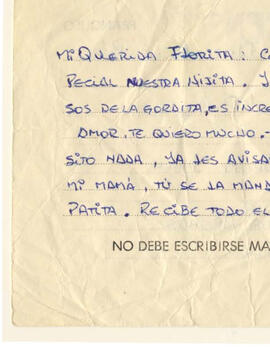 MI QUERIDA FLORITA: C
PECIAL NUESTRA HIJITA. Y
SOS DE LA GORDITA, ES INCRE
AMOR, TE QUIERO MUCHO.
SITO NADA, YA LES AVISA
MI MAMÁ, TÚ SE LA MAND
PATITA. RECIBE TODO EL
NO DEBE ESCRIBIRSE MA